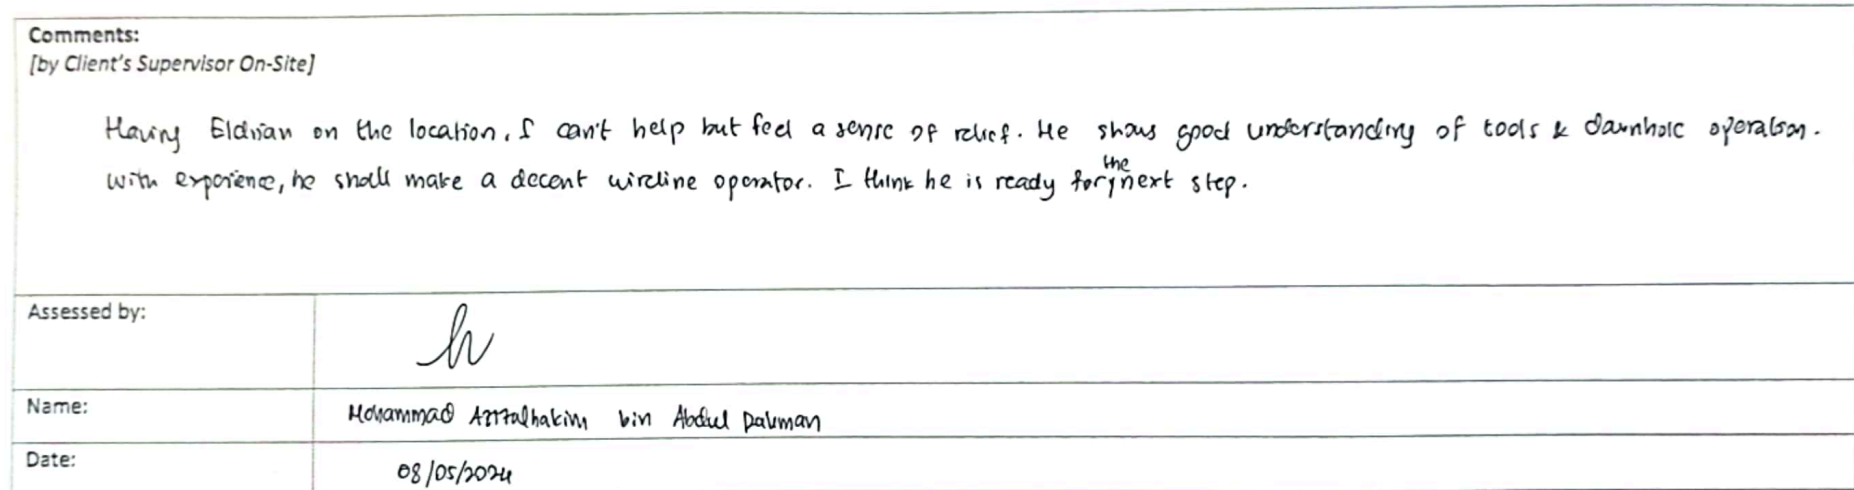 Comments:
[by Client's Supervisor On-Site]
Having Eldrian on the location, I can't help but feel a sense of relief. He shows good understanding of tools & downhole operation.
With experience, he shall make a decent wireline operator. I think he is ready for the next step.
Assessed by:
Name: Mohammad bin Abdul
Date: 08/05/2024